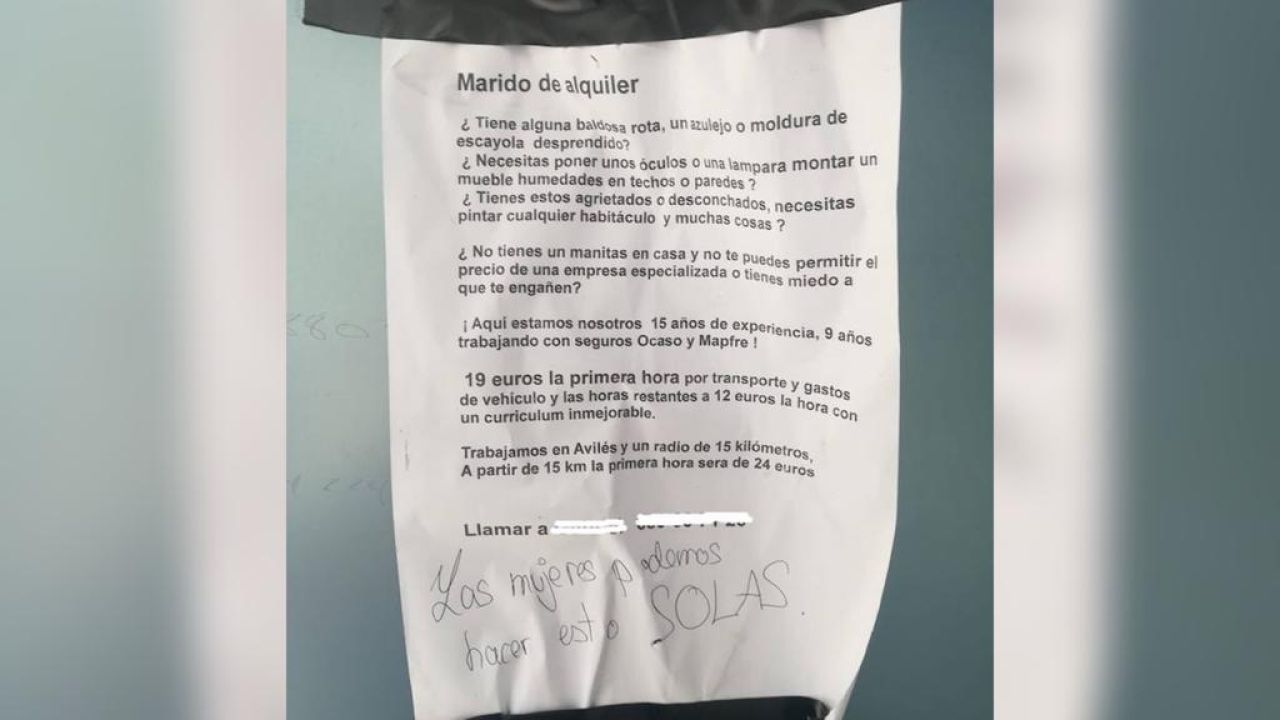 Marido de alquiler
¿ Tiene alguna baldosa rota, un azulejo o moldura de
escayola desprendido?
¿ Necesitas poner unos óculos o una lampara montar un
mueble humedades en techos o paredes ?
¿ Tienes estos agrietados o desconchados, necesitas
pintar cualquier habitáculo y muchas cosas ?
¿ No tienes un manitas en casa y no te puedes permitir el
precio de una empresa especializada o tienes miedo a
que te engañen?
¡ Aquí estamos nosotros 15 años de experiencia, 9 años
trabajando con seguros Ocaso y Mapfre !
19 euros la primera hora por transporte y gastos
de vehículo y las horas restantes a 12 euros la hora con
un curriculum inmejorable.
Trabajamos en Avilés y un radio de 15 kilómetros,
A partir de 15 km la primera hora sera de 24 euros
Llamar a
Las mujeres podemos
hacer esto SOLAS.